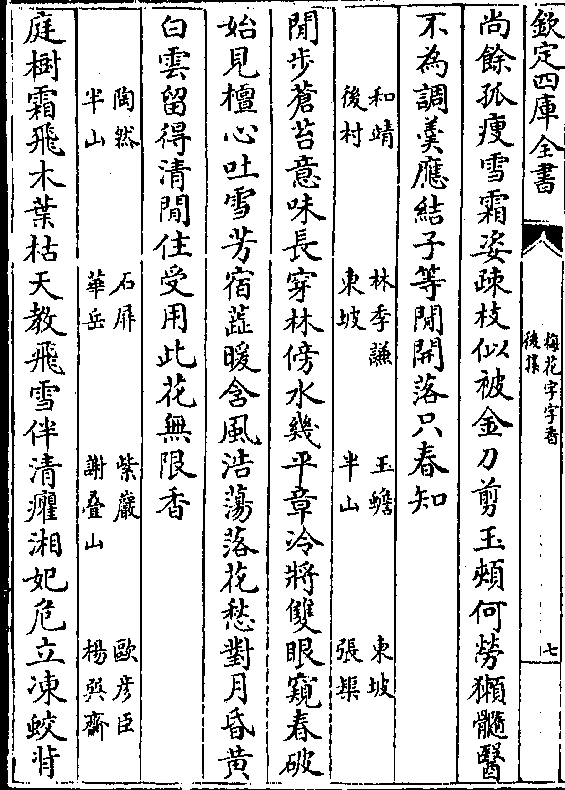 欽定四庫全書
梅花字字香
後集
七
尚餘孤瘦雪霜姿疎枝似被金刀剪玉頰何勞獺髓醫
不為調羹應結子等閒開落只春知
和靖 林季謙 玉蟾 東坡
後村 東坡 半山 張榘
閒步蒼苔意味長穿林傍水幾平章冷將雙眼窺春破
始見檀心吐雪芳宿蕋暖含風浩蕩落花愁對月昏黄
白雲留得清閒住受用此花無限香
陶然 石屏 紫巖 歐彦臣
半山 華岳 謝叠山 楊巽齋
庭樹霜飛木葉枯天教飛雪伴清癯湘妃危立凍蛟背